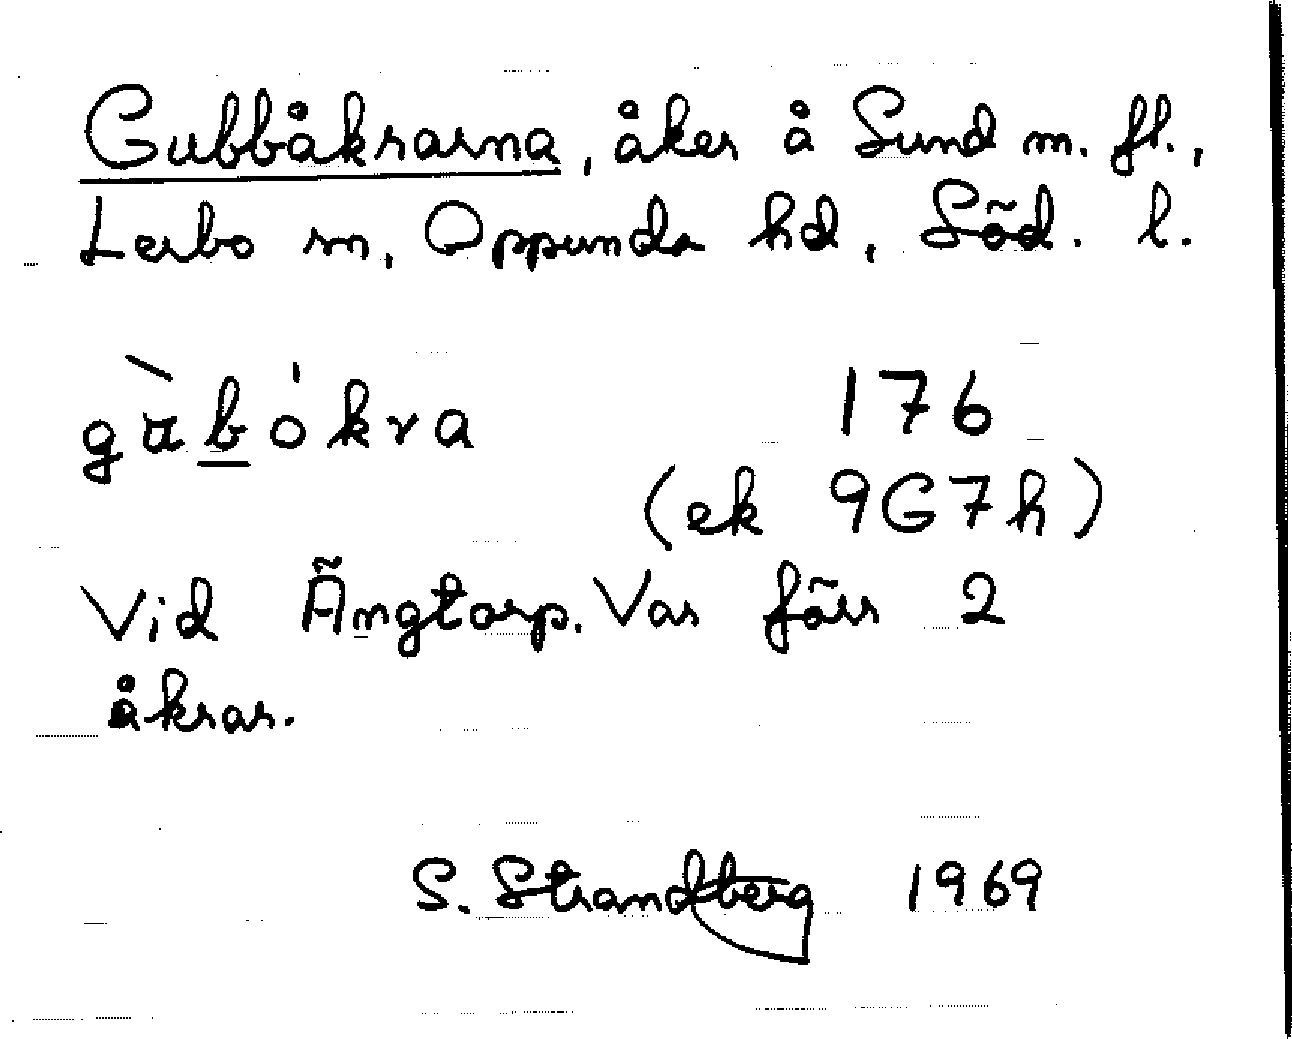 Gubbåkrarna, åker å Sund m. fl.,
Lerbo sn, Oppunda hd, Söd. l.
gàbókra 176
(ek 9G7h)
Vid Ängtorp. Var förr 2
åkrar.
S. Strandberg 1969